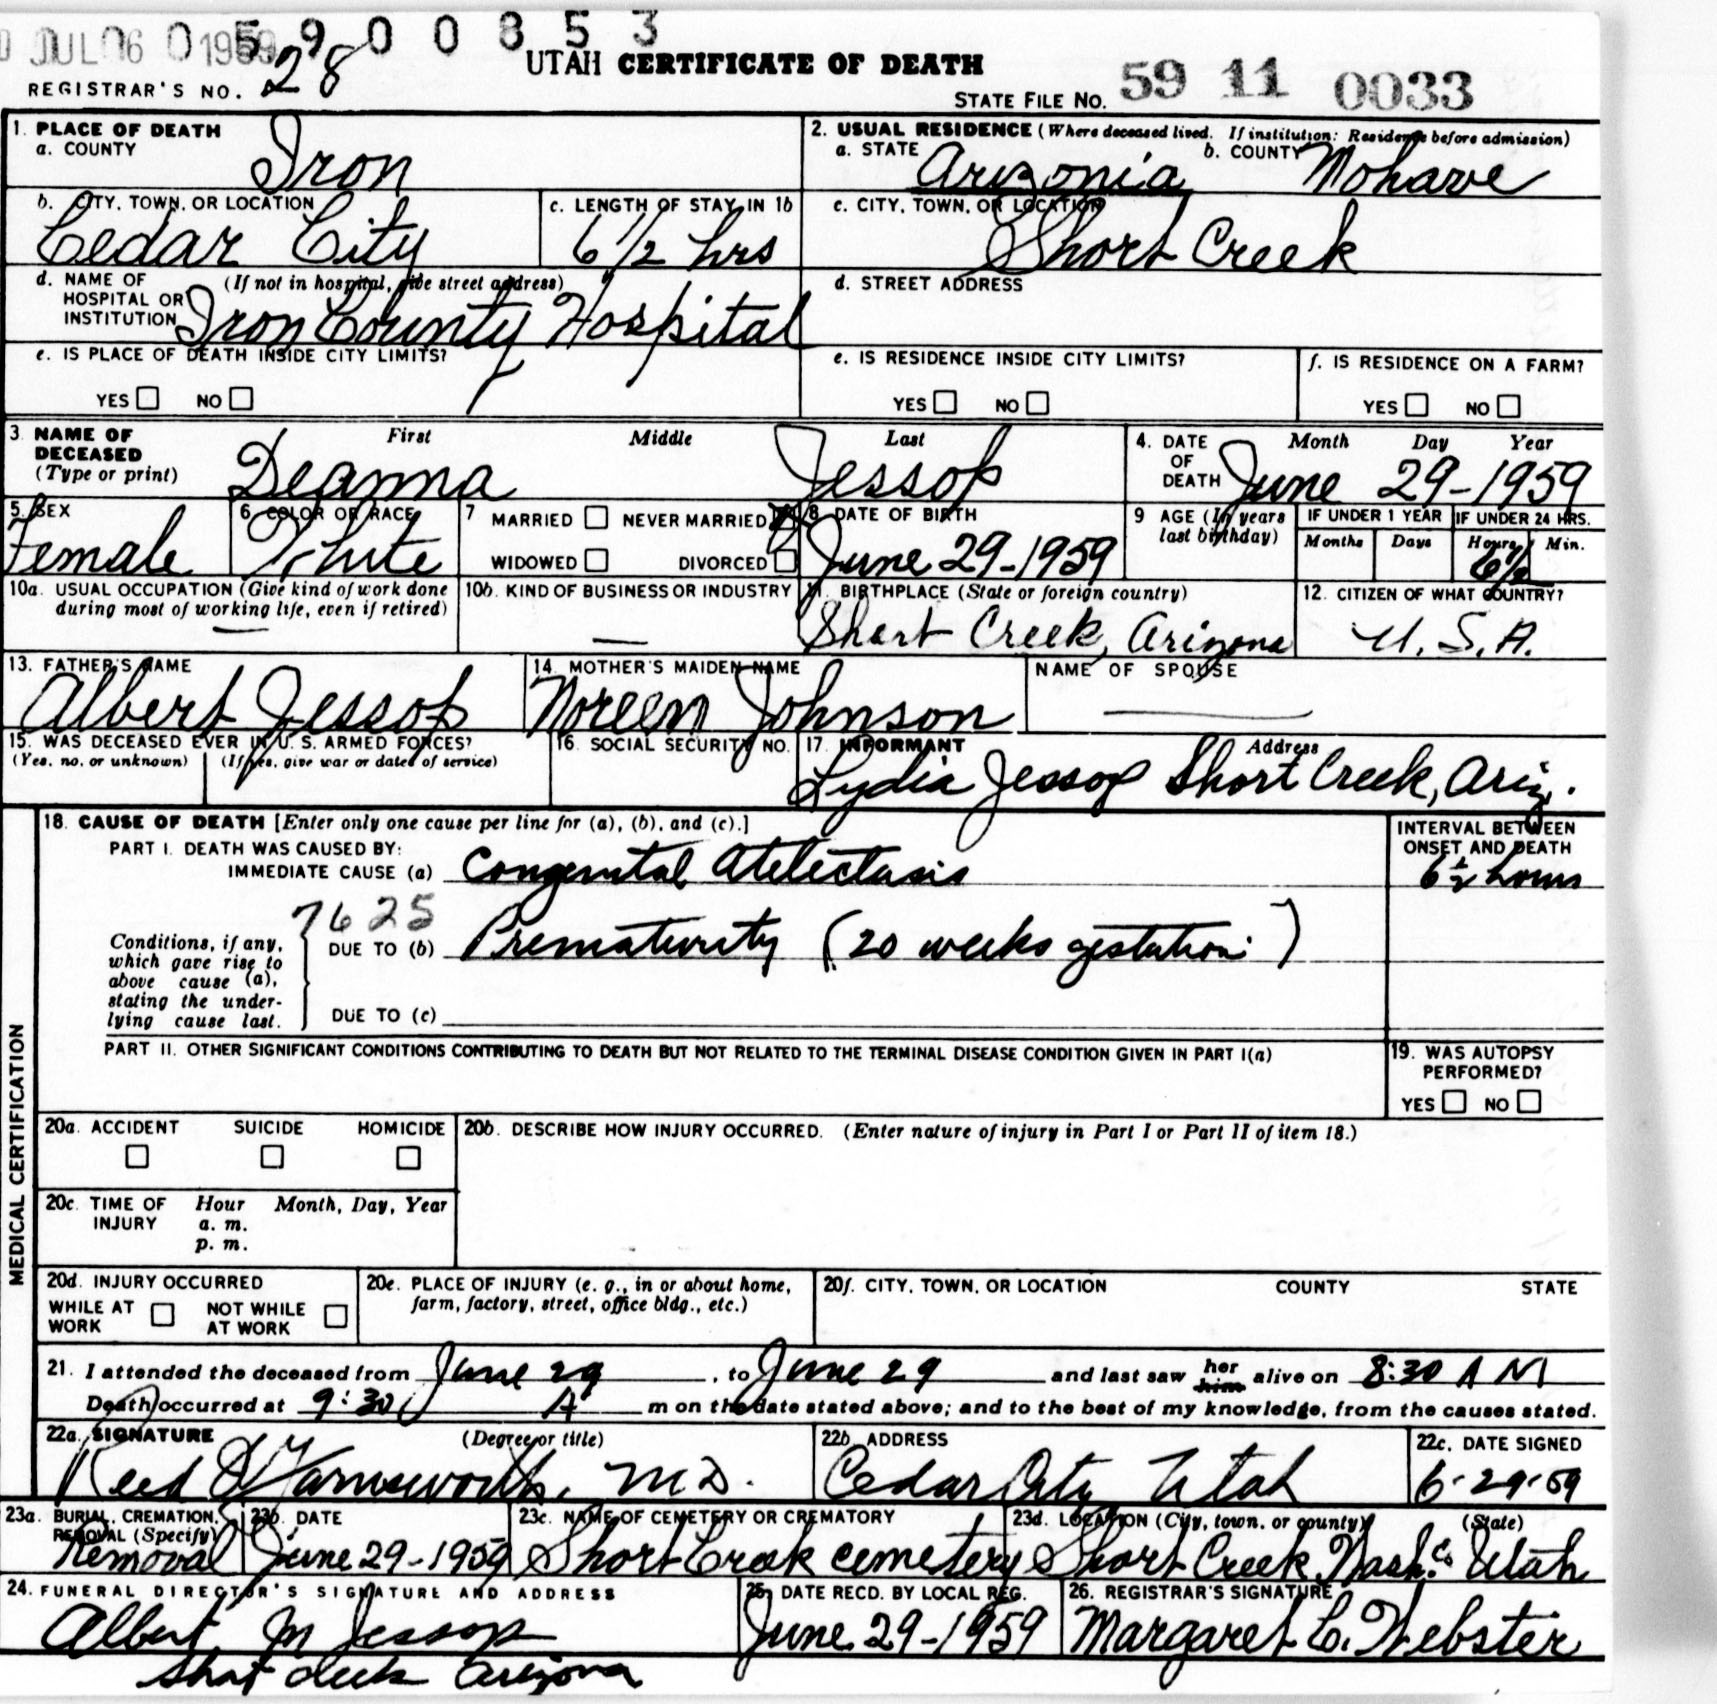 JUL 6 0 1959 5 9 0 0 8 5 3
UTAH CERTIFICATE OF DEATH
REGISTRAR'S NO. 28
STATE FILE NO. 59 11 0033
1. PLACE OF DEATH
a. COUNTY Iron
2. USUAL RESIDENCE (Where deceased lived. If institution: Residence before admission)
a. STATE Arizonia b. COUNTY Mohave
b. CITY, TOWN, OR LOCATION Cedar City
c. LENGTH OF STAY IN 1b 6 1/2 hrs
c. CITY, TOWN, OR LOCATION Short Creek
d. NAME OF HOSPITAL OR INSTITUTION (If not in hospital, give street address) Iron County Hospital
d. STREET ADDRESS
e. IS PLACE OF DEATH INSIDE CITY LIMITS?
YES NO
e. IS RESIDENCE INSIDE CITY LIMITS?
YES NO
f. IS RESIDENCE ON A FARM?
YES NO
3. NAME OF DECEASED (Type or print) First Middle Last
Deanna Jessop
4. DATE OF DEATH Month Day Year
June 29-1959
5. SEX Female
6. COLOR OR RACE White
7 MARRIED NEVER MARRIED
WIDOWED DIVORCED
8 DATE OF BIRTH June 29-1959
9 AGE (In years last birthday)
IF UNDER 1 YEAR Months Days
IF UNDER 24 HRS. Hours Min.
6 1/2
10a. USUAL OCCUPATION (Give kind of work done during most of working life, even if retired) —
10b. KIND OF BUSINESS OR INDUSTRY —
11. BIRTHPLACE (State or foreign country) Short Creek, Arizona
12. CITIZEN OF WHAT COUNTRY? U. S. A.
13. FATHER'S NAME Albert Jessop
14. MOTHER'S MAIDEN NAME Noreen Johnson
NAME OF SPOUSE —
15. WAS DECEASED EVER IN U. S. ARMED FORCES?
(Yes, no, or unknown) (If yes, give war or dates of service)
16. SOCIAL SECURITY NO.
17. INFORMANT Address
Lydia Jessop Short Creek, Ariz.
18. CAUSE OF DEATH [Enter only one cause per line for (a), (b), and (c).]
PART I. DEATH WAS CAUSED BY:
IMMEDIATE CAUSE (a) Congenital Atelectasis
INTERVAL BETWEEN ONSET AND DEATH
6 1/2 hours
7625
Conditions, if any, which gave rise to above cause (a), stating the underlying cause last.
DUE TO (b) Prematurity (20 weeks gestation)
DUE TO (c)
PART II. OTHER SIGNIFICANT CONDITIONS CONTRIBUTING TO DEATH BUT NOT RELATED TO THE TERMINAL DISEASE CONDITION GIVEN IN PART I(a)
19. WAS AUTOPSY PERFORMED?
YES NO
MEDICAL CERTIFICATION
20a. ACCIDENT SUICIDE HOMICIDE
20b. DESCRIBE HOW INJURY OCCURRED. (Enter nature of injury in Part I or Part II of item 18.)
20c. TIME OF INJURY Hour Month, Day, Year
a. m.
p. m.
20d. INJURY OCCURRED
WHILE AT WORK NOT WHILE AT WORK
20e. PLACE OF INJURY (e. g., in or about home, farm, factory, street, office bldg., etc.)
20f. CITY, TOWN, OR LOCATION COUNTY STATE
21. I attended the deceased from June 29, to June 29 and last saw her him alive on 8:30 A M
Death occurred at 9:30 A m on the date stated above; and to the best of my knowledge, from the causes stated.
22a. SIGNATURE (Degree or title)
Reed Farnsworth, M D.
22b ADDRESS Cedar City Utah
22c. DATE SIGNED 6-29-59
23a. BURIAL, CREMATION, REMOVAL (Specify) Removal
23b. DATE June 29-1959
23c. NAME OF CEMETERY OR CREMATORY Short Creek cemetery
23d. LOCATION (City, town, or county) (State)
Short Creek, Wash. Co. Utah
24. FUNERAL DIRECTOR'S SIGNATURE AND ADDRESS
Albert M Jessop
Short Creek Arizona
25. DATE RECD. BY LOCAL REG. June 29-1959
26. REGISTRAR'S SIGNATURE Margaret C. Webster